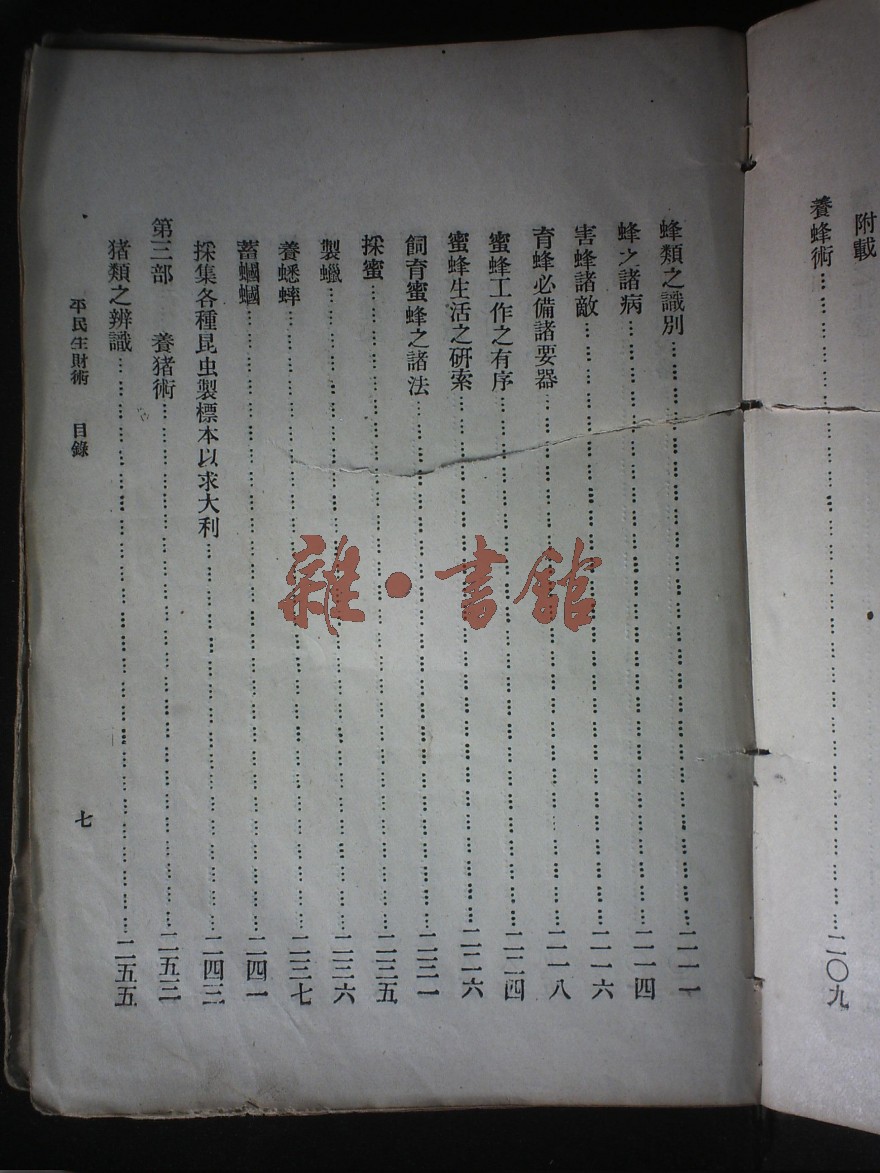 附載
養蜂術……二〇九
蜂類之識別……二一一
蜂之諸病……二一四
害蜂諸敵……二一六
育蜂必備諸要器……二一八
蜜蜂工作之有序……二二四
蜜蜂生活之研索……二二六
飼育蜜蜂之諸法……二三一
採蜜……二三五
製蠟……二三六
養蟋蟀……二三七
蓄蟈蟈……二四一
採集各種昆虫製標本以求大利……二四三
第三部 養猪術……二五三
猪類之辨識……二五五
平民生財術 目錄 七
雜·書館